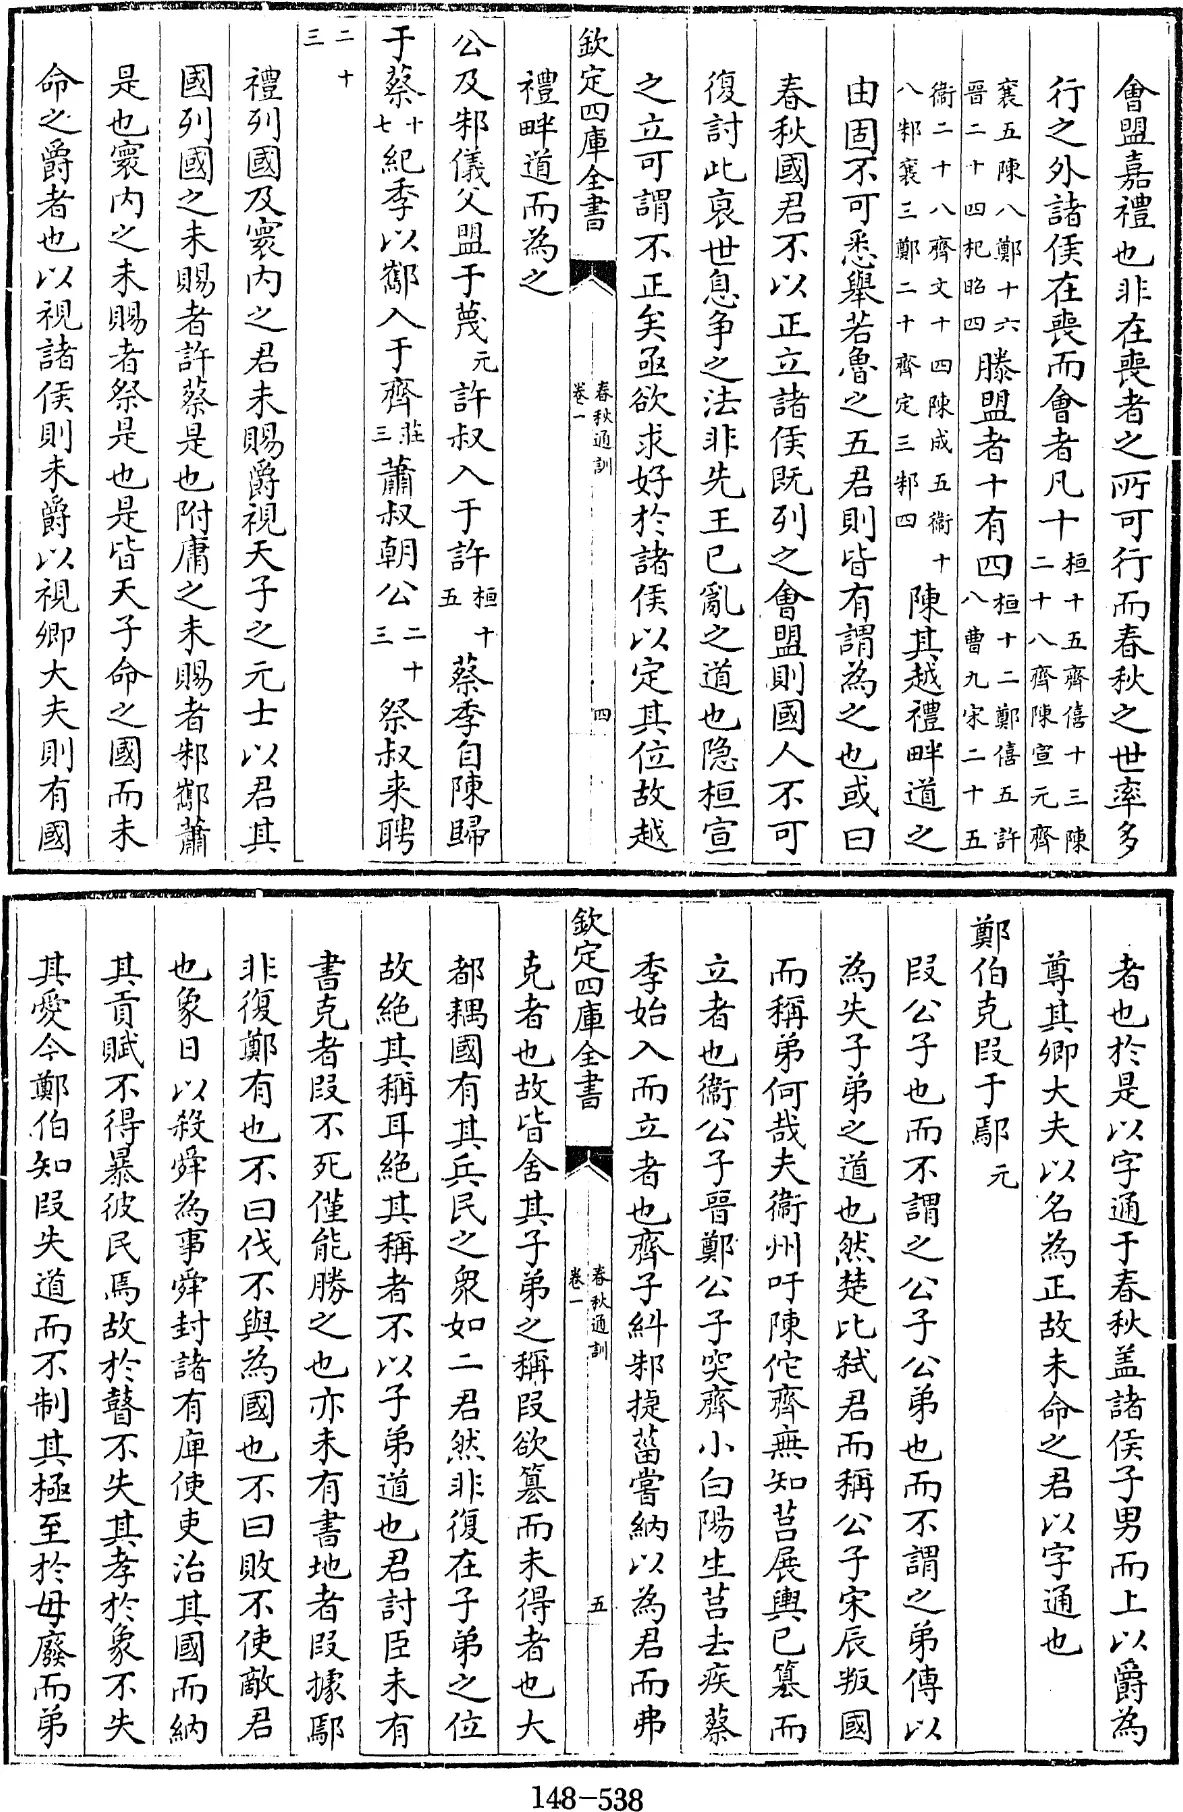 會盟嘉禮也非在喪者之所可行而春秋之世率多
行之外諸侯在喪而會者凡十桓十五齊僖十三陳二十八齊陳宣元齊
襄五陳八鄭十六晉二十四杞昭四滕盟者十有四桓十二鄭僖五許八曹九宋二十五
衞二十八齊文十四陳成五衞十八邾襄三鄭二十齊定三邾四陳其越禮畔道之
由固不可悉舉若魯之五君則皆有謂為之也或曰
春秋國君不以正立諸侯既列之會盟則國人不可
復討此衰世息争之法非先王已亂之道也隐桓宣
之立可謂不正矣亟欲求好於諸侯以定其位故越
欽定四庫全書
春秋通訓
卷一
四
禮畔道而為之
公及邾儀父盟于蔑元許叔入于許桓十五蔡季自陳歸
于蔡十七紀季以酅入于齊莊三蕭叔朝公二十三祭叔来聘
二十三
禮列國及寰内之君未賜爵視天子之元士以君其
國列國之未賜者許蔡是也附庸之未賜者邾酅蕭
是也寰内之未賜者祭是也是皆天子命之國而未
命之爵者也以視諸侯則未爵以視卿大夫則有國
者也於是以字通于春秋盖諸侯子男而上以爵為
尊其卿大夫以名為正故未命之君以字通也
鄭伯克段于鄢元
段公子也而不謂之公子公弟也而不謂之弟傳以
為失子弟之道也然楚比弑君而稱公子宋辰叛國
而稱弟何哉夫衞州吁陳佗齊無知莒展輿已簒而
立者也衞公子晉鄭公子突齊小白陽生莒去疾蔡
季始入而立者也齊子糾邾捷菑嘗納以為君而弗
欽定四庫全書
春秋通訓
卷一
五
克者也故皆舍其子弟之稱段欲簒而未得者也大
都耦國有其兵民之衆如二君然非復在子弟之位
故絶其稱耳絶其稱者不以子弟道也君討臣未有
書克者段不死僅能勝之也亦未有書地者段據鄢
非復鄭有也不曰伐不與為國也不曰敗不使敵君
也象日以殺舜為事舜封諸有庳使吏治其國而納
其貢賦不得暴彼民焉故於瞽不失其孝於象不失
其愛今鄭伯知段失道而不制其極至於毋廢而弟
148-538